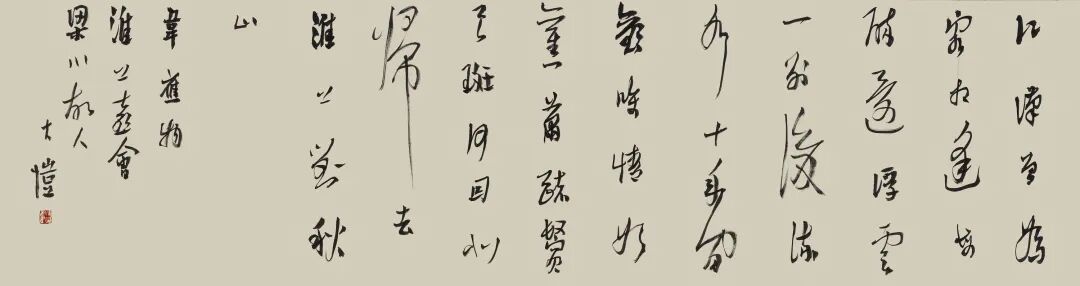 江漢曾為
客相逢每
醉還浮雲
一別後流
水十年間
歡咲情如
舊蕭疏鬢
已斑何因北
帰去
淮上對秋
山
韋應物
淮上喜會
梁川故人
大愷